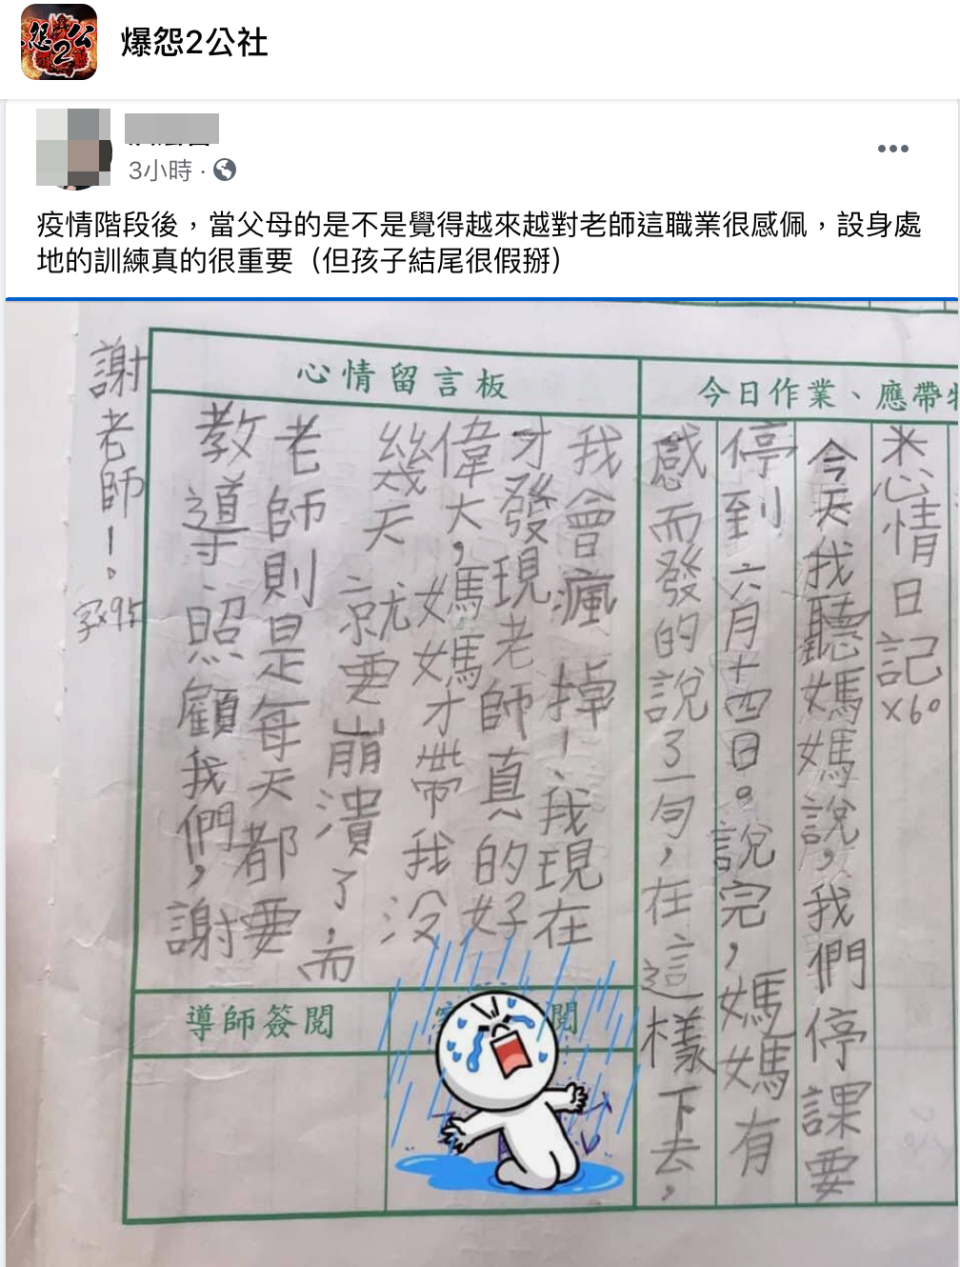 怨公
2
爆怨2公社
3小時 ·
疫情階段後，當父母的是不是覺得越來越對老師這職業很感佩，設身處
地的訓練真的很重要（但孩子結尾很假掰）
心情留言板
今日作業、應帶
※心情日記x60
今天我聽媽媽說，我們停課要
停到六月十四日。說完，媽媽有
感而發的說了一句，在這樣下去，
我會瘋掉！、我現在
才發現老師真的好
偉大，媽媽才帶我沒
幾天就要崩潰了，而
老師則是每天都要
教導照顧我們，謝
謝老師！。
字x95
導師簽閱
閱